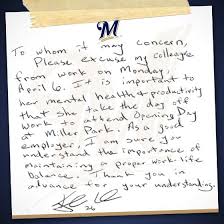 M
To whom it may concern,
Please excuse my colleage
from work on Monday,
April 6. It is important to
her mental health & productivity
that she take the day off
work & attend Opening Day
at Miller Park. As a good
employer, I am sure you
understand the importance of
maintaining a proper work-life
balance. Thank you in
advance for your understanding.
26